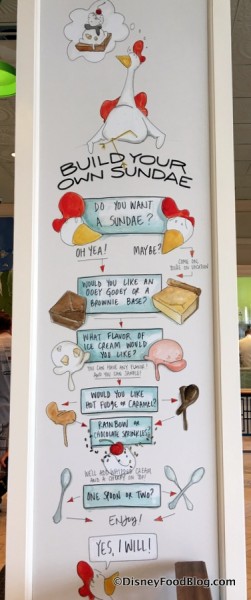 BUILD YOUR
OWN SUNDAE
DO YOU WANT
A SUNDAE?
OH YEA!
MAYBE?
COME ON,
YOU'RE ON VACATION
WOULD YOU LIKE AN
OOEY GOOEY OR A
BROWNIE BASE?
WHAT FLAVOR OF
ICE CREAM WOULD
YOU LIKE?
YOU CAN HAVE ANY FLAVOR!
AND YOU CAN SAMPLE!
WOULD YOU LIKE
HOT FUDGE OR CARAMEL?
RAINBOW OR
CHOCOLATE SPRINKLES?
WE'LL ADD WHIPPED CREAM
AND A CHERRY ON TOP!
ONE SPOON OR TWO?
ENJOY!
YES, I WILL!
©DisneyFoodBlog.com